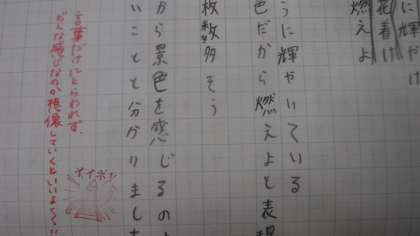 に輝や
花着け
燃えよ
うに輝やいている
色だから燃えよと表現
枚数多そう
から景色を感じるの
いことと分かりました
言葉だけにとらわれず、
どんな感じなのか想像していくといいよ〜
イイネ!